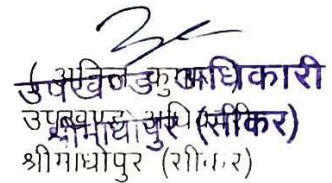 (अनिल कुमार
उपखण्ड अधिकारी
उपखण्ड अधिकारी
श्रीमाधोपुर (सीकर)
श्रीमाधोपुर (सीकर)